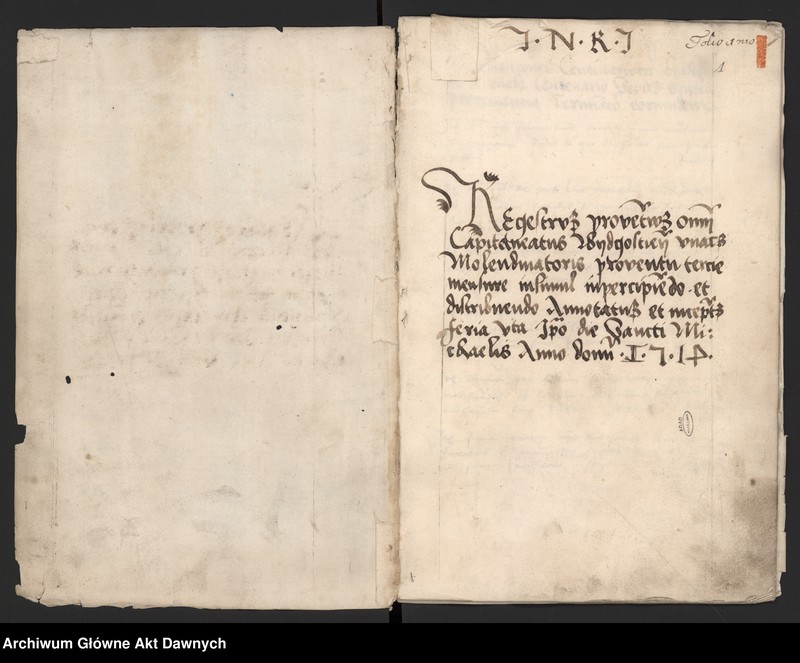 I · N · R · I
Folio
1
Regestrum proventus omnium
Capitaneatus Bydgostien unacum
Molendinatoris proventu tercie
mensure insimul inpercipiendo et
distribuendo Annotatus et inceptus
feria Ipso die Sancti Mi:
chaelis Anno domini
Archiwum Główne Akt Dawnych